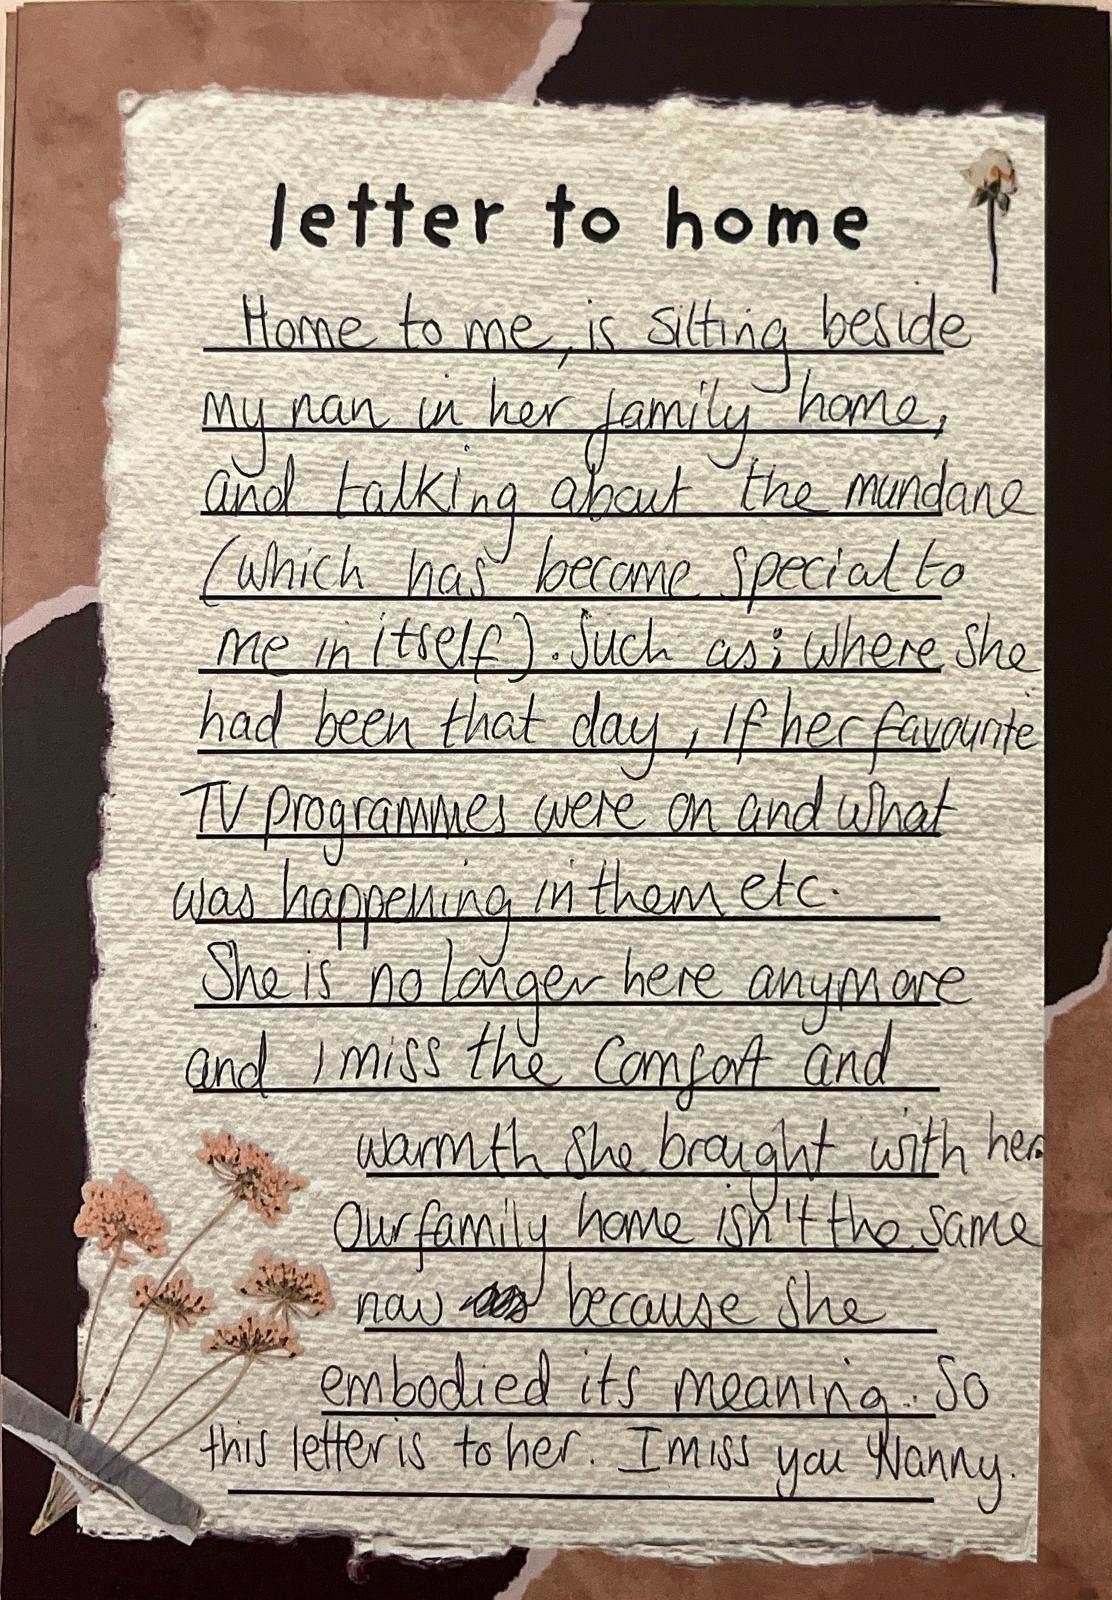 letter to home
Home to me, is sitting beside
my nan in her family home,
and talking about the mundane
(which has become special to
me in itself). Such as; where she
had been that day, if her favourite
TV programmes were on and what
was happening in them etc.
She is no longer here anymore
and I miss the comfort and
warmth she brought with her.
Our family home isn't the same
now because she
embodied its meaning. So
this letter is to her. I miss you Nanny.